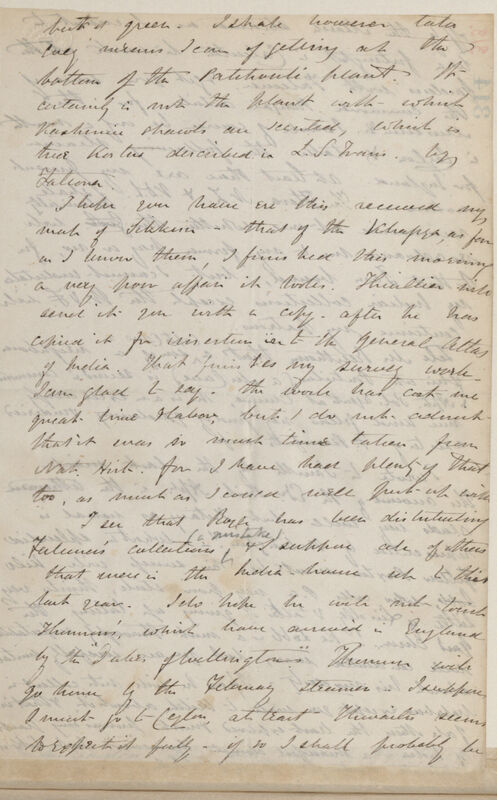 but it green. I shall however take
every means I can of getting at the
bottom of the Patchouli plant. It
certainly is not the plant with which
Kashmir shawls are scented, which is
true Kostus described in L.S. Trans. by
Falconer.
I hope you have ere this received my
map of Sikkim – that of the Khasya, as far
as I know them, I finished this morning
a very poor affair it looks. Thuillier will
send it you with a copy – after he has
copied it for insertion into the general Atlas
of India. That finishes my survey work
I am glad to say – the work has cost me
great time & labor, but I do not admit
that it was so much time taken from
Nat. Hist. for I have had plenty of that
too, as much as I could well put up with
I see that Royle has been distributing
Falconer's collections, a mistake & I suppose all of others
that were in the India-house up to this
last year. I do hope he will not touch
Thomson's, which have arrived in England
by the "Duke of Wellington" Thomson will
go home by the February steamer. I suppose
I must go to Ceylon, at least Thwaites seems
to expect it fully – if so I shall probably be